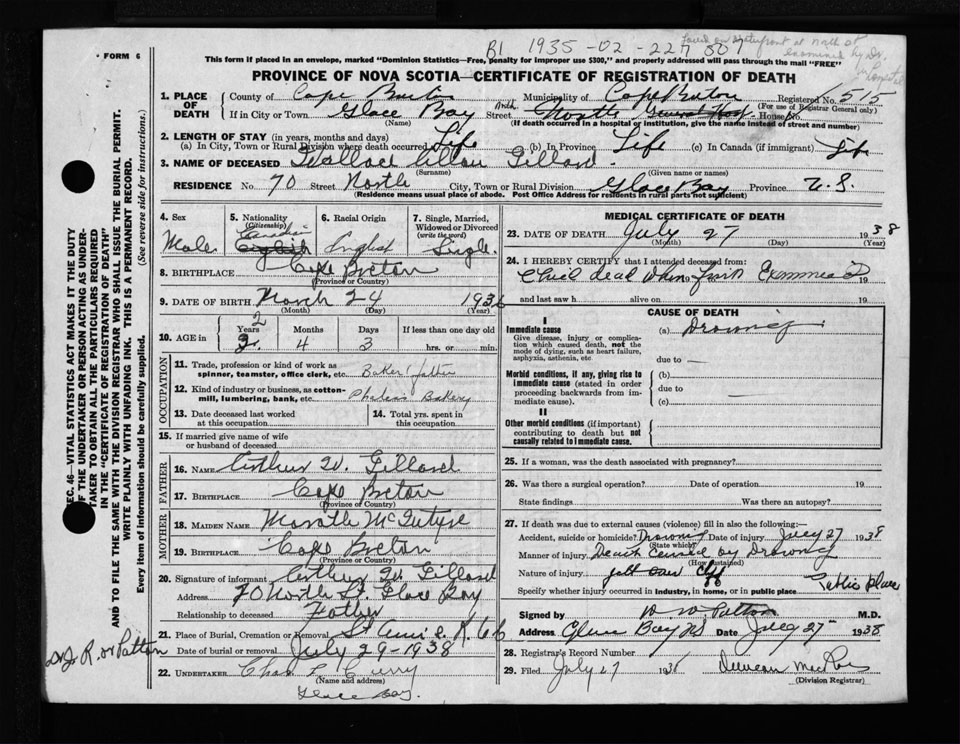 FORM 6
B1 1935-02-227807
Found on Waterfront at North St
examined by Dr.
This form if placed in an envelope, marked "Dominion Statistics—Free, penalty for improper use $300," and properly addressed will pass through the mail "FREE"
PROVINCE OF NOVA SCOTIA—CERTIFICATE OF REGISTRATION OF DEATH
1. PLACE OF DEATH County of Cape Breton Municipality of Cape Breton Registered No. 515
(For use of Registrar General only)
If in City or Town Glace Bay Street North House No.
(Name) (If death occurred in a hospital or institution, give the name instead of street and number)
2. LENGTH OF STAY (in years, months and days)
(a) In City, Town or Rural Division where death occurred Life (b) In Province Life (c) In Canada (if immigrant) Life
3. NAME OF DECEASED Wallace Gillard
(Surname) (Given name or names)
RESIDENCE No. 70 Street North City, Town or Rural Division Glace Bay Province N.S.
(Residence means usual place of abode. Post Office Address for residents in rural parts not sufficient)
SEC. 46—VITAL STATISTICS ACT MAKES IT THE DUTY
OF THE UNDERTAKER OR PERSON ACTING AS UNDER-
TAKER TO OBTAIN ALL THE PARTICULARS REQUIRED
IN THE "CERTIFICATE OF REGISTRATION OF DEATH"
AND TO FILE THE SAME WITH THE DIVISION REGISTRAR WHO SHALL ISSUE THE BURIAL PERMIT.
WRITE PLAINLY WITH UNFADING INK. THIS IS A PERMANENT RECORD.
Every item of information should be carefully supplied. (See reverse side for instructions.)
4. Sex Male
5. Nationality (Citizenship) Canadian English
6. Racial Origin English
7. Single, Married, Widowed or Divorced (write the word) Single
8. BIRTHPLACE Cape Breton
(Province or Country)
9. DATE OF BIRTH March 24 1936
(Month) (Day) (Year)
10. AGE in Years 2 Months 4 Days 3 If less than one day old hrs. or min.
OCCUPATION
11. Trade, profession or kind of work as spinner, teamster, office clerk, etc. Baker father
12. Kind of industry or business, as cotton-mill, lumbering, bank, etc. Bakery
13. Date deceased last worked at this occupation
14. Total yrs. spent in this occupation
15. If married give name of wife or husband of deceased
FATHER
16. NAME Arthur W. Gillard
17. BIRTHPLACE Cape Breton
(Province or Country)
MOTHER
18. MAIDEN NAME McIntyre
19. BIRTHPLACE Cape Breton
(Province or Country)
20. Signature of informant Arthur W. Gillard
Address 70 North St. Glace Bay
Relationship to deceased Father
21. Place of Burial, Cremation or Removal St Ann's
Date of burial or removal July 29-1938
22. UNDERTAKER Chas L Curry
(Name and address)
Glace Bay
Patton
MEDICAL CERTIFICATE OF DEATH
23. DATE OF DEATH July 27 1938
(Month) (Day) (Year)
24. I HEREBY CERTIFY that I attended deceased from:
Child dead when first Examined 19
and last saw h alive on 19
CAUSE OF DEATH
I
Immediate cause
Give disease, injury or complication which caused death, not the mode of dying, such as heart failure, asphyxia, asthenia, etc.
(a) Drowning
due to
Morbid conditions, if any, giving rise to immediate cause (stated in order proceeding backwards from immediate cause).
(b)
due to
(c)
II
Other morbid conditions (if important) contributing to death but not causally related to immediate cause.
25. If a woman, was the death associated with pregnancy?
26. Was there a surgical operation? Date of operation 19
State findings Was there an autopsy?
27. If death was due to external causes (violence) fill in also the following:—
Accident, suicide or homicide? Drowning Date of injury July 27 1938
(State which)
Manner of injury Death Caused by Drowning
(How sustained)
Nature of injury fell over Cliff
Specify whether injury occurred in Industry, in home, or in public place Public place
Signed by Patton M.D.
Address Glace Bay NS Date July 27 1938
28. Registrar's Record Number
29. Filed July 27 1938 Duncan
(Division Registrar)